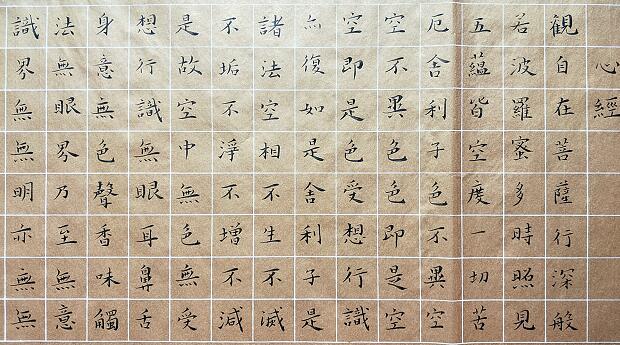 心經
観自在菩薩行深般
若波羅蜜多時照見
五蘊皆空度一切苦
厄舍利子色不異空
空不異色色即是空
空即是色受想行識
亦復如是舍利子是
諸法空相不生不滅
不垢不淨不增不減
是故空中無色無受
想行識無眼耳鼻舌
身意無色聲香味觸
法無眼界乃至無意
識界無無明亦無無